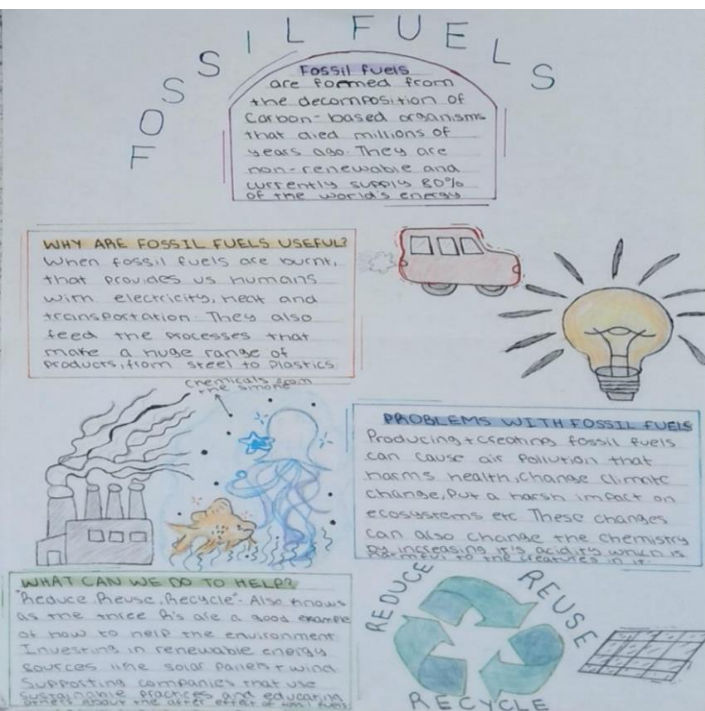 FOSSIL FUELS
Fossil fuels
are formed from
the decomposition of
Carbon-based organisms
that died millions of
years ago. They are
non-renewable and
currently supply 80%
of the world's energy
WHY ARE FOSSIL FUELS USEFUL?
When fossil fuels are burnt,
that provides us humans
with electricity, heat and
transportation. They also
feed the processes that
make a huge range of
products, from steel to plastics
chemicals from
the smoke
PROBLEMS WITH FOSSIL FUELS
Producing + creating fossil fuels
can cause air pollution that
harms health, change climate
change, put a harsh impact on
ecosystems etc. These changes
can also change the chemistry
by increasing it's acidity which is
harmful to the creatures in it.
WHAT CAN WE DO TO HELP?
"Reduce, Reuse, Recycle"- Also knows
as the three R's are a good example
of how to help the environment
Investing in renewable energy
sources like solar panels + wind
Supporting companies that use
sustainable practices and educating
others about the after effect of fossil fuels
REDUCE
REUSE
RECYCLE